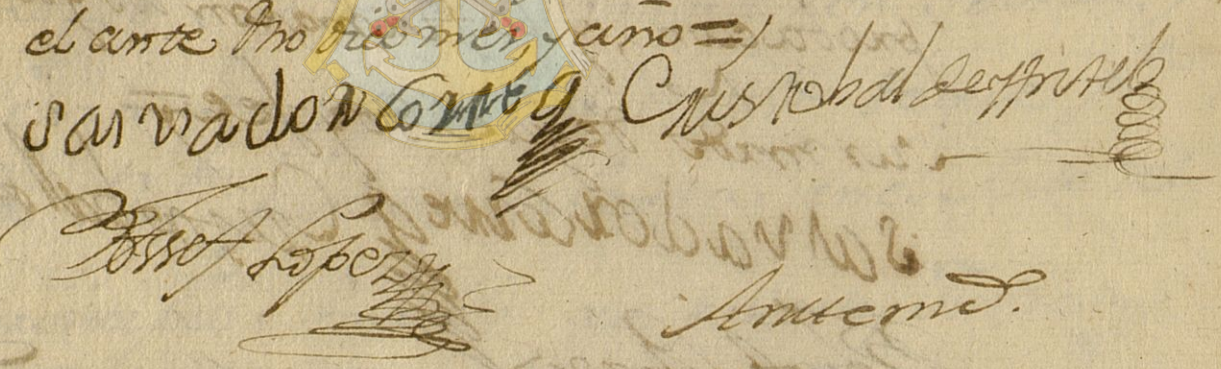 el ante dho dia mes y año =
sarvador Comes Cristobal de
Jossef Lopez Ante mi.